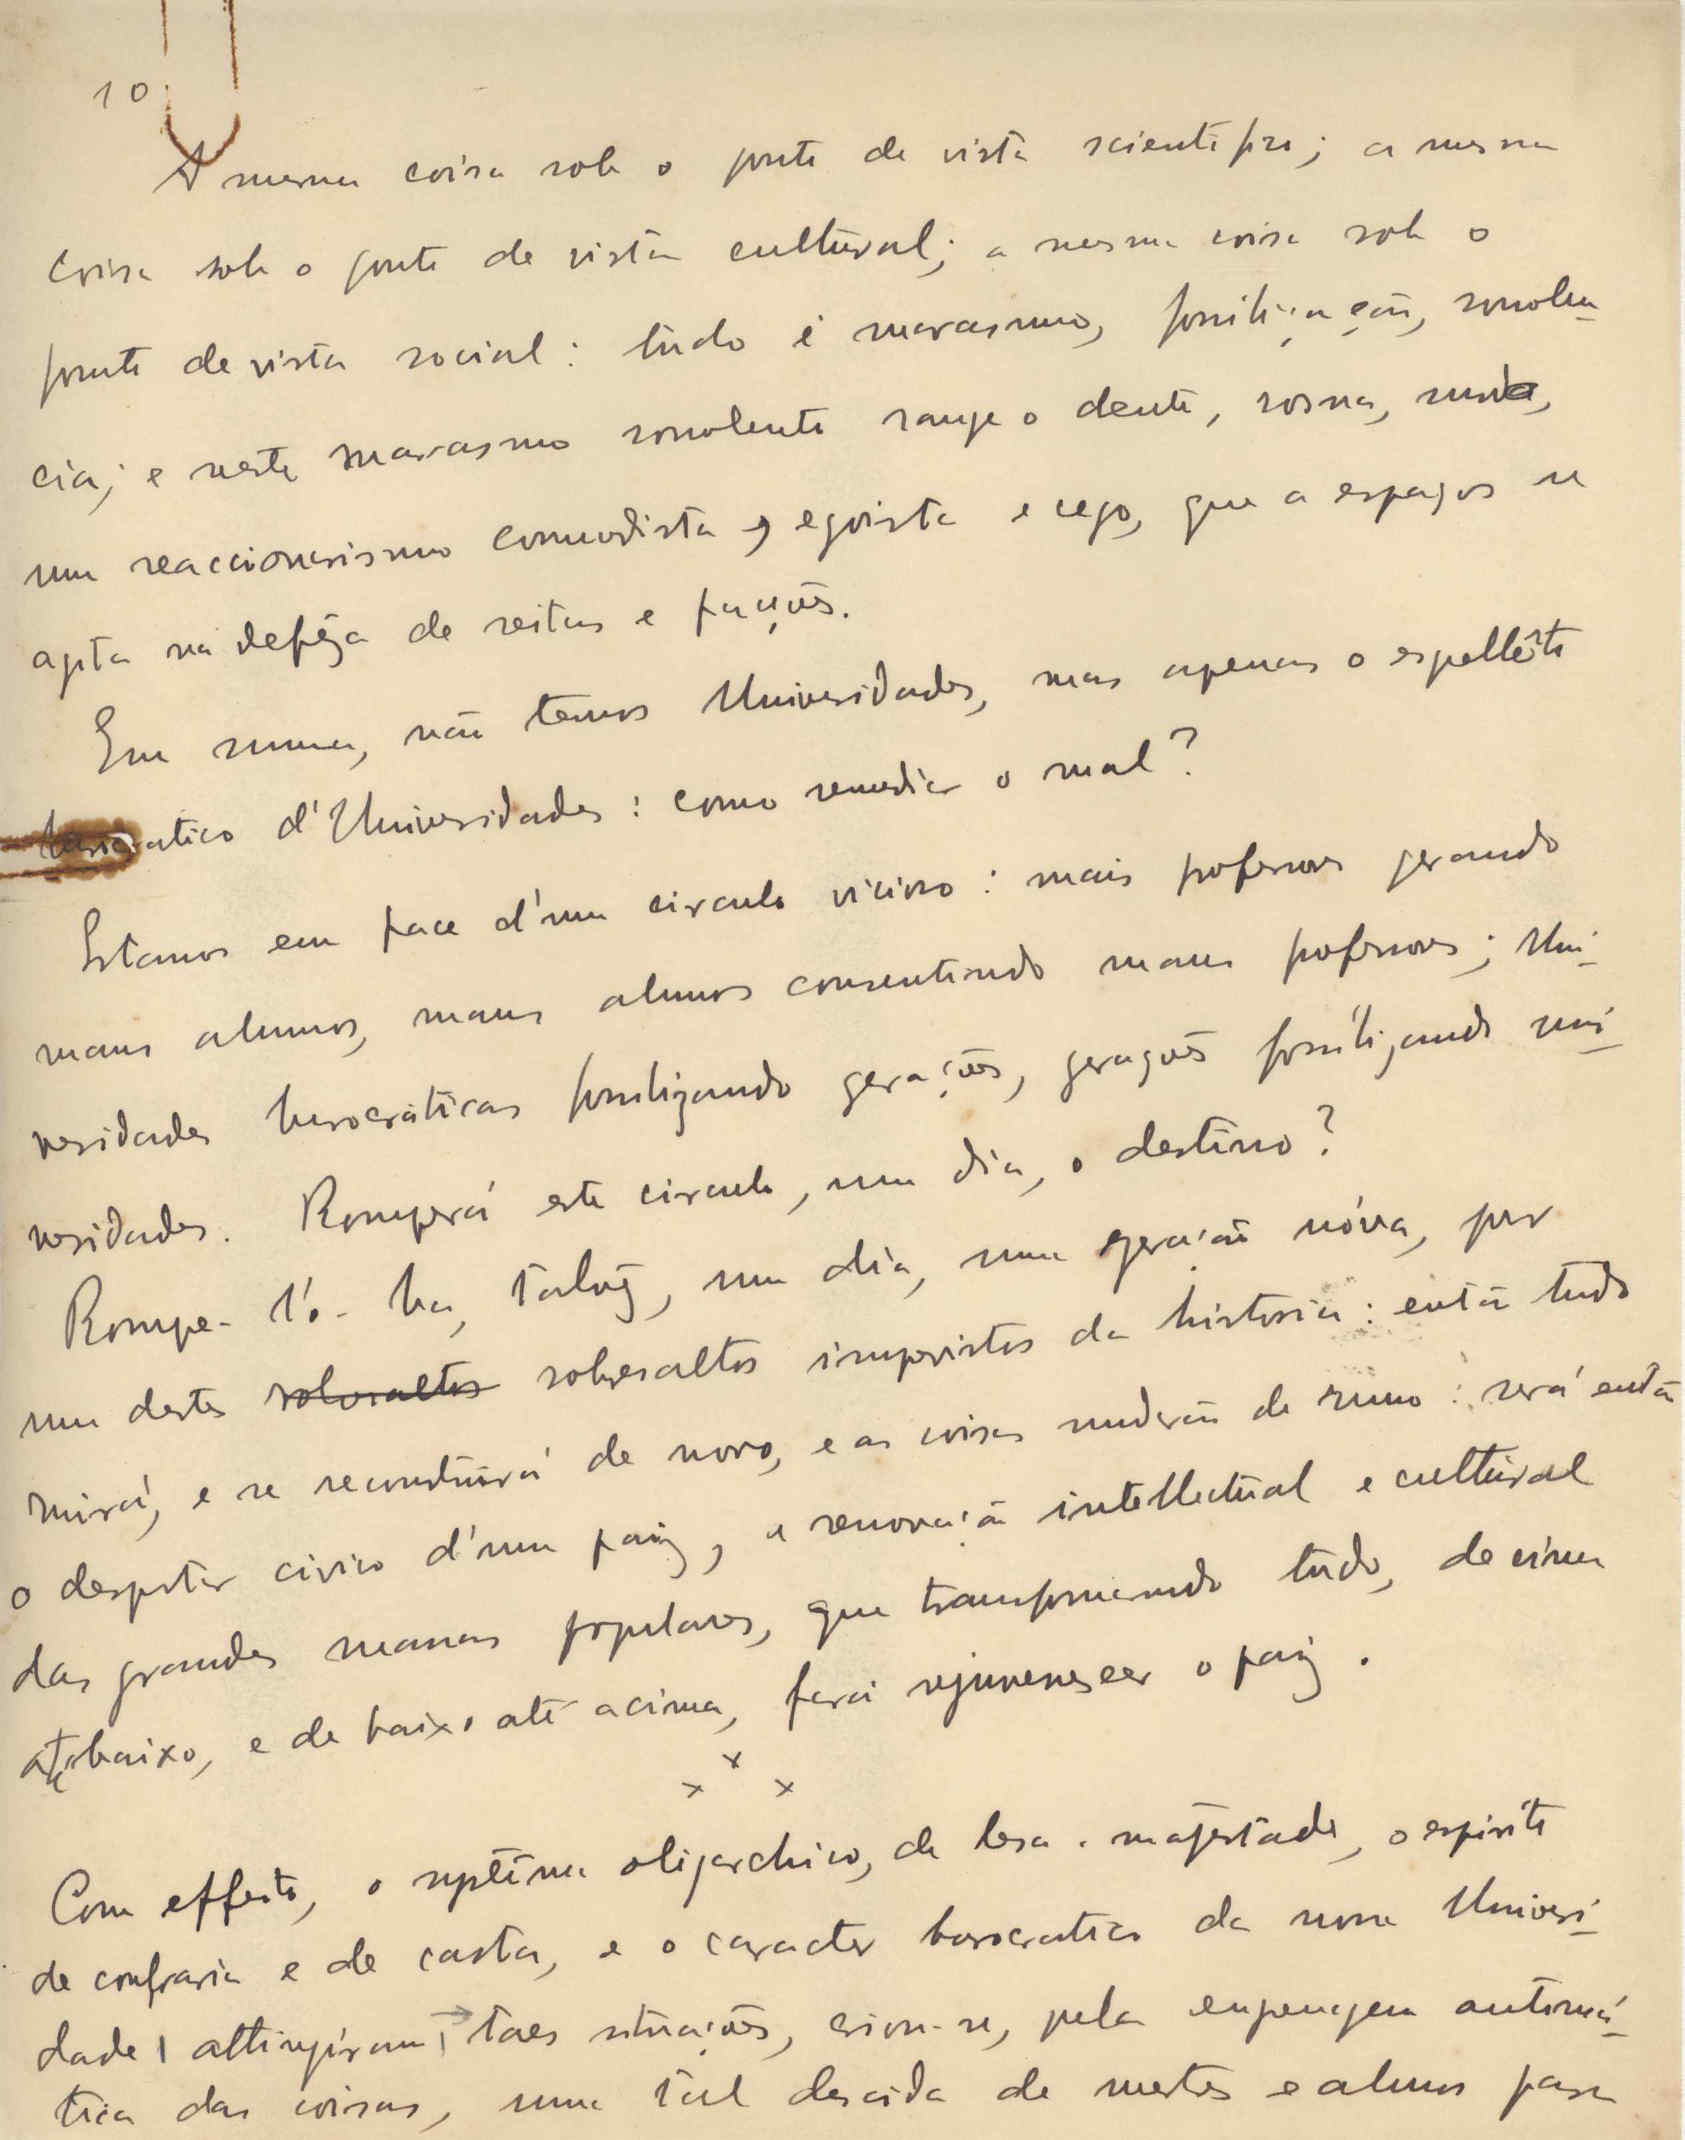 10
A mesma coisa sob o ponto de vista scientifico; a mesma
coisa sob o ponto de vista cultural; a mesma coisa sob o
ponto de vista social: tudo é marasmo, fossilização, sonolen-
cia; e neste marasmo sonolento range o dente, rosna,
um reaccionarismo commodista, egoista e cego, que a espaços se
agita na defêza de seitas e facções.
Em summa, não temos Universidades, mas apenas o esquelêto
burocratico d'Universidades: como remediar o mal?
Estamos em face d'um circulo vicioso: maus professores gerando
maus alumnos, maus alumnos consentindo maus professores; Uni-
versidades burocráticas fossilizando gerações, gerações fossilizando uni-
versidades. Romperá este circulo, um dia, o destino?
Rompe-l'o-ha, talvez, um dia, uma geração nóva, por
um destes sobresaltos sobresaltos imprevistos da historia: então tudo
ruirá, e se reconstruirá de novo, e as coisas mudarão de rumo: será então
o despertar civico d'um paiz, a renovação intellectual e cultural
das grandes massas populares, que transformando tudo, de cima
até baixo, e de baixo até acima, fará rejuvenescer o paiz.
x x x
Com effeito, o systema oligarchico, de lesa-majestade, o espirito
de confraria e de casta, e o caracter burocratico da nossa Universi-
dade attingiram taes situações, criou-se, pela engrenagem automá-
tica das coisas, uma tal descida de mestres e alumnos para